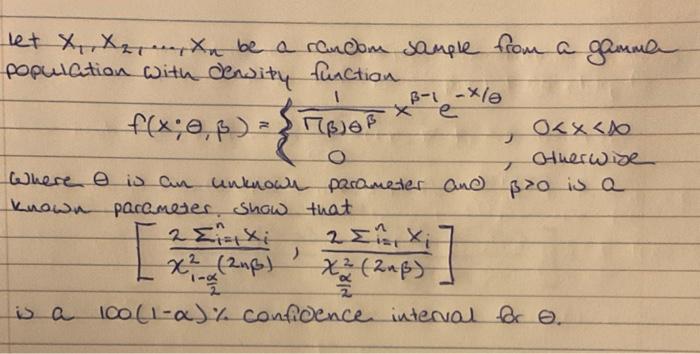 let X₁, X₂, ..., Xₙ be a random sample from a gamma
population with density function
f(x; θ, β) = { 1/(Γ(β)θ^β) x^(β-1) e^(-x/θ) , 0<x<∞
0 , otherwise
where θ is an unknown parameter and β>0 is a
known parameter. show that
[ 2 Σⁿᵢ₌₁ Xᵢ / χ²_(1-α/2) (2nβ) , 2 Σⁿᵢ₌₁ Xᵢ / χ²_(α/2) (2nβ) ]
is a 100(1-α)% confidence interval for θ.